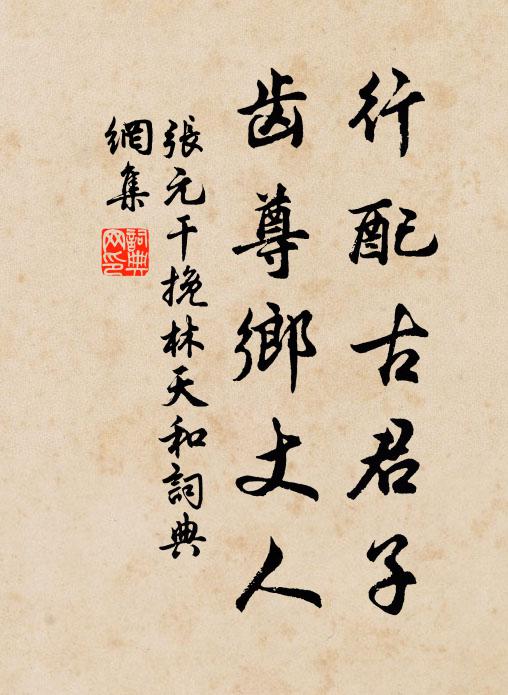 行配古君子
齿尊鄉丈人
張元干挽林天和詞典
網集
詞典
网印